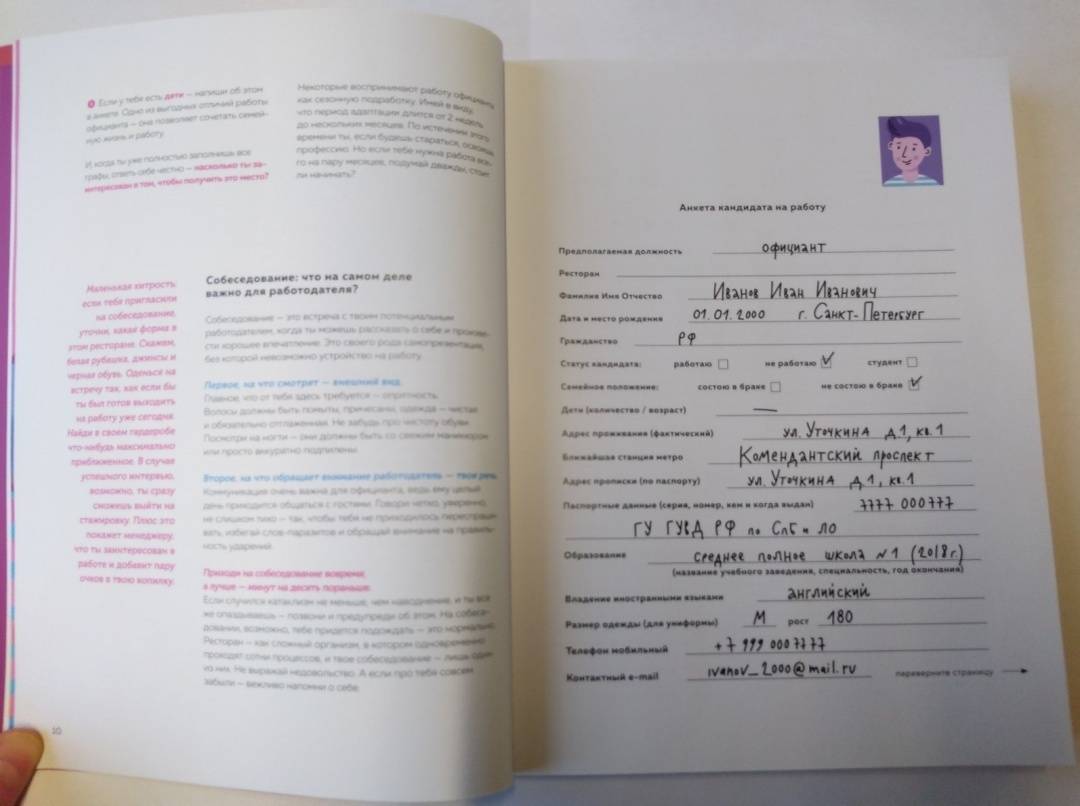 Если у тебя есть дети — напиши об этом
в анкете. Одно из выгодных отличий работы
официанта — она позволяет сочетать семей-
ную жизнь и работу.
И, когда ты уже полностью заполнишь все
графы, ответь себе честно — насколько ты за-
интересован в том, чтобы получить это место?
Некоторые воспринимают работу официанта
как сезонную подработку. Имей в виду,
что период адаптации длится от 2 недель
до нескольких месяцев. По истечении этого
времени ты, если будешь стараться, освоишь
профессию. Но если тебе нужна работа все-
го на пару месяцев, подумай дважды, стоит
ли начинать?
Маленькая хитрость:
если тебя пригласили
на собеседование,
уточни, какая форма в
этом ресторане. Скажем,
белая рубашка, джинсы и
черная обувь. Оденься на
встречу так, как если бы
ты был готов выходить
на работу уже сегодня.
Найди в своем гардеробе
что-нибудь максимально
приближенное. В случае
успешного интервью,
возможно, ты сразу
сможешь выйти на
стажировку. Плюс это
покажет менеджеру,
что ты заинтересован в
работе и добавит пару
очков в твою копилку.
Собеседование: что на самом деле
важно для работодателя?
Собеседование — это встреча с твоим потенциальным
работодателем, когда ты можешь рассказать о себе и произве-
сти хорошее впечатление. Это своего рода самопрезентация,
без которой невозможно устройство на работу.
Первое, на что смотрят — внешний вид.
Главное, что от тебя здесь требуется — опрятность.
Волосы должны быть помыты, причесаны, одежда — чистая
и обязательно отглаженная. Не забудь про чистоту обуви.
Посмотри на ногти — они должны быть со свежим маникюром
или просто аккуратно подпилены.
Второе, на что обращает внимание работодатель — твоя речь.
Коммуникация очень важна для официанта, ведь ему целый
день приходится общаться с гостями. Говори четко, уверенно,
не слишком тихо — так, чтобы тебя не приходилось переспраши-
вать, избегай слов-паразитов и обращай внимание на правиль-
ность ударений.
Приходи на собеседование вовремя,
а лучше — минут на десять пораньше.
Если случился катаклизм не меньше, чем наводнение, и ты всё
же опаздываешь — позвони и предупреди об этом. На собесе-
довании, возможно, тебе придется подождать — это нормально.
Ресторан — как сложный организм, в котором одновременно
проходят сотни процессов, и твое собеседование — лишь один
из них. Не выражай недовольство. А если про тебя совсем
забыли — вежливо напомни о себе.
10
Анкета кандидата на работу
Предполагаемая должность официант
Ресторан
Фамилия Имя Отчество Иванов Иван Иванович
Дата и место рождения 01.01.2000 г. Санкт-Петербург
Гражданство РФ
Статус кандидата: работаю не работаю студент
Семейное положение: состою в браке не состою в браке
Дети (количество / возраст) —
Адрес проживания (фактический) ул. Уточкина д.1, кв.1
Ближайшая станция метро Комендантский проспект
Адрес прописки (по паспорту) ул. Уточкина д.1, кв.1
Паспортные данные (серия, номер, кем и когда выдан) 7777 000777
ГУ ГУВД РФ по СПб и ЛО
Образование среднее полное школа №1 (2018г.)
(название учебного заведения, специальность, год окончания)
Владение иностранными языками английский
Размер одежды (для униформы) М рост 180
Телефон мобильный +7 999 000 7777
Контактный e-mail ivanov_2000@mail.ru переверните страницу